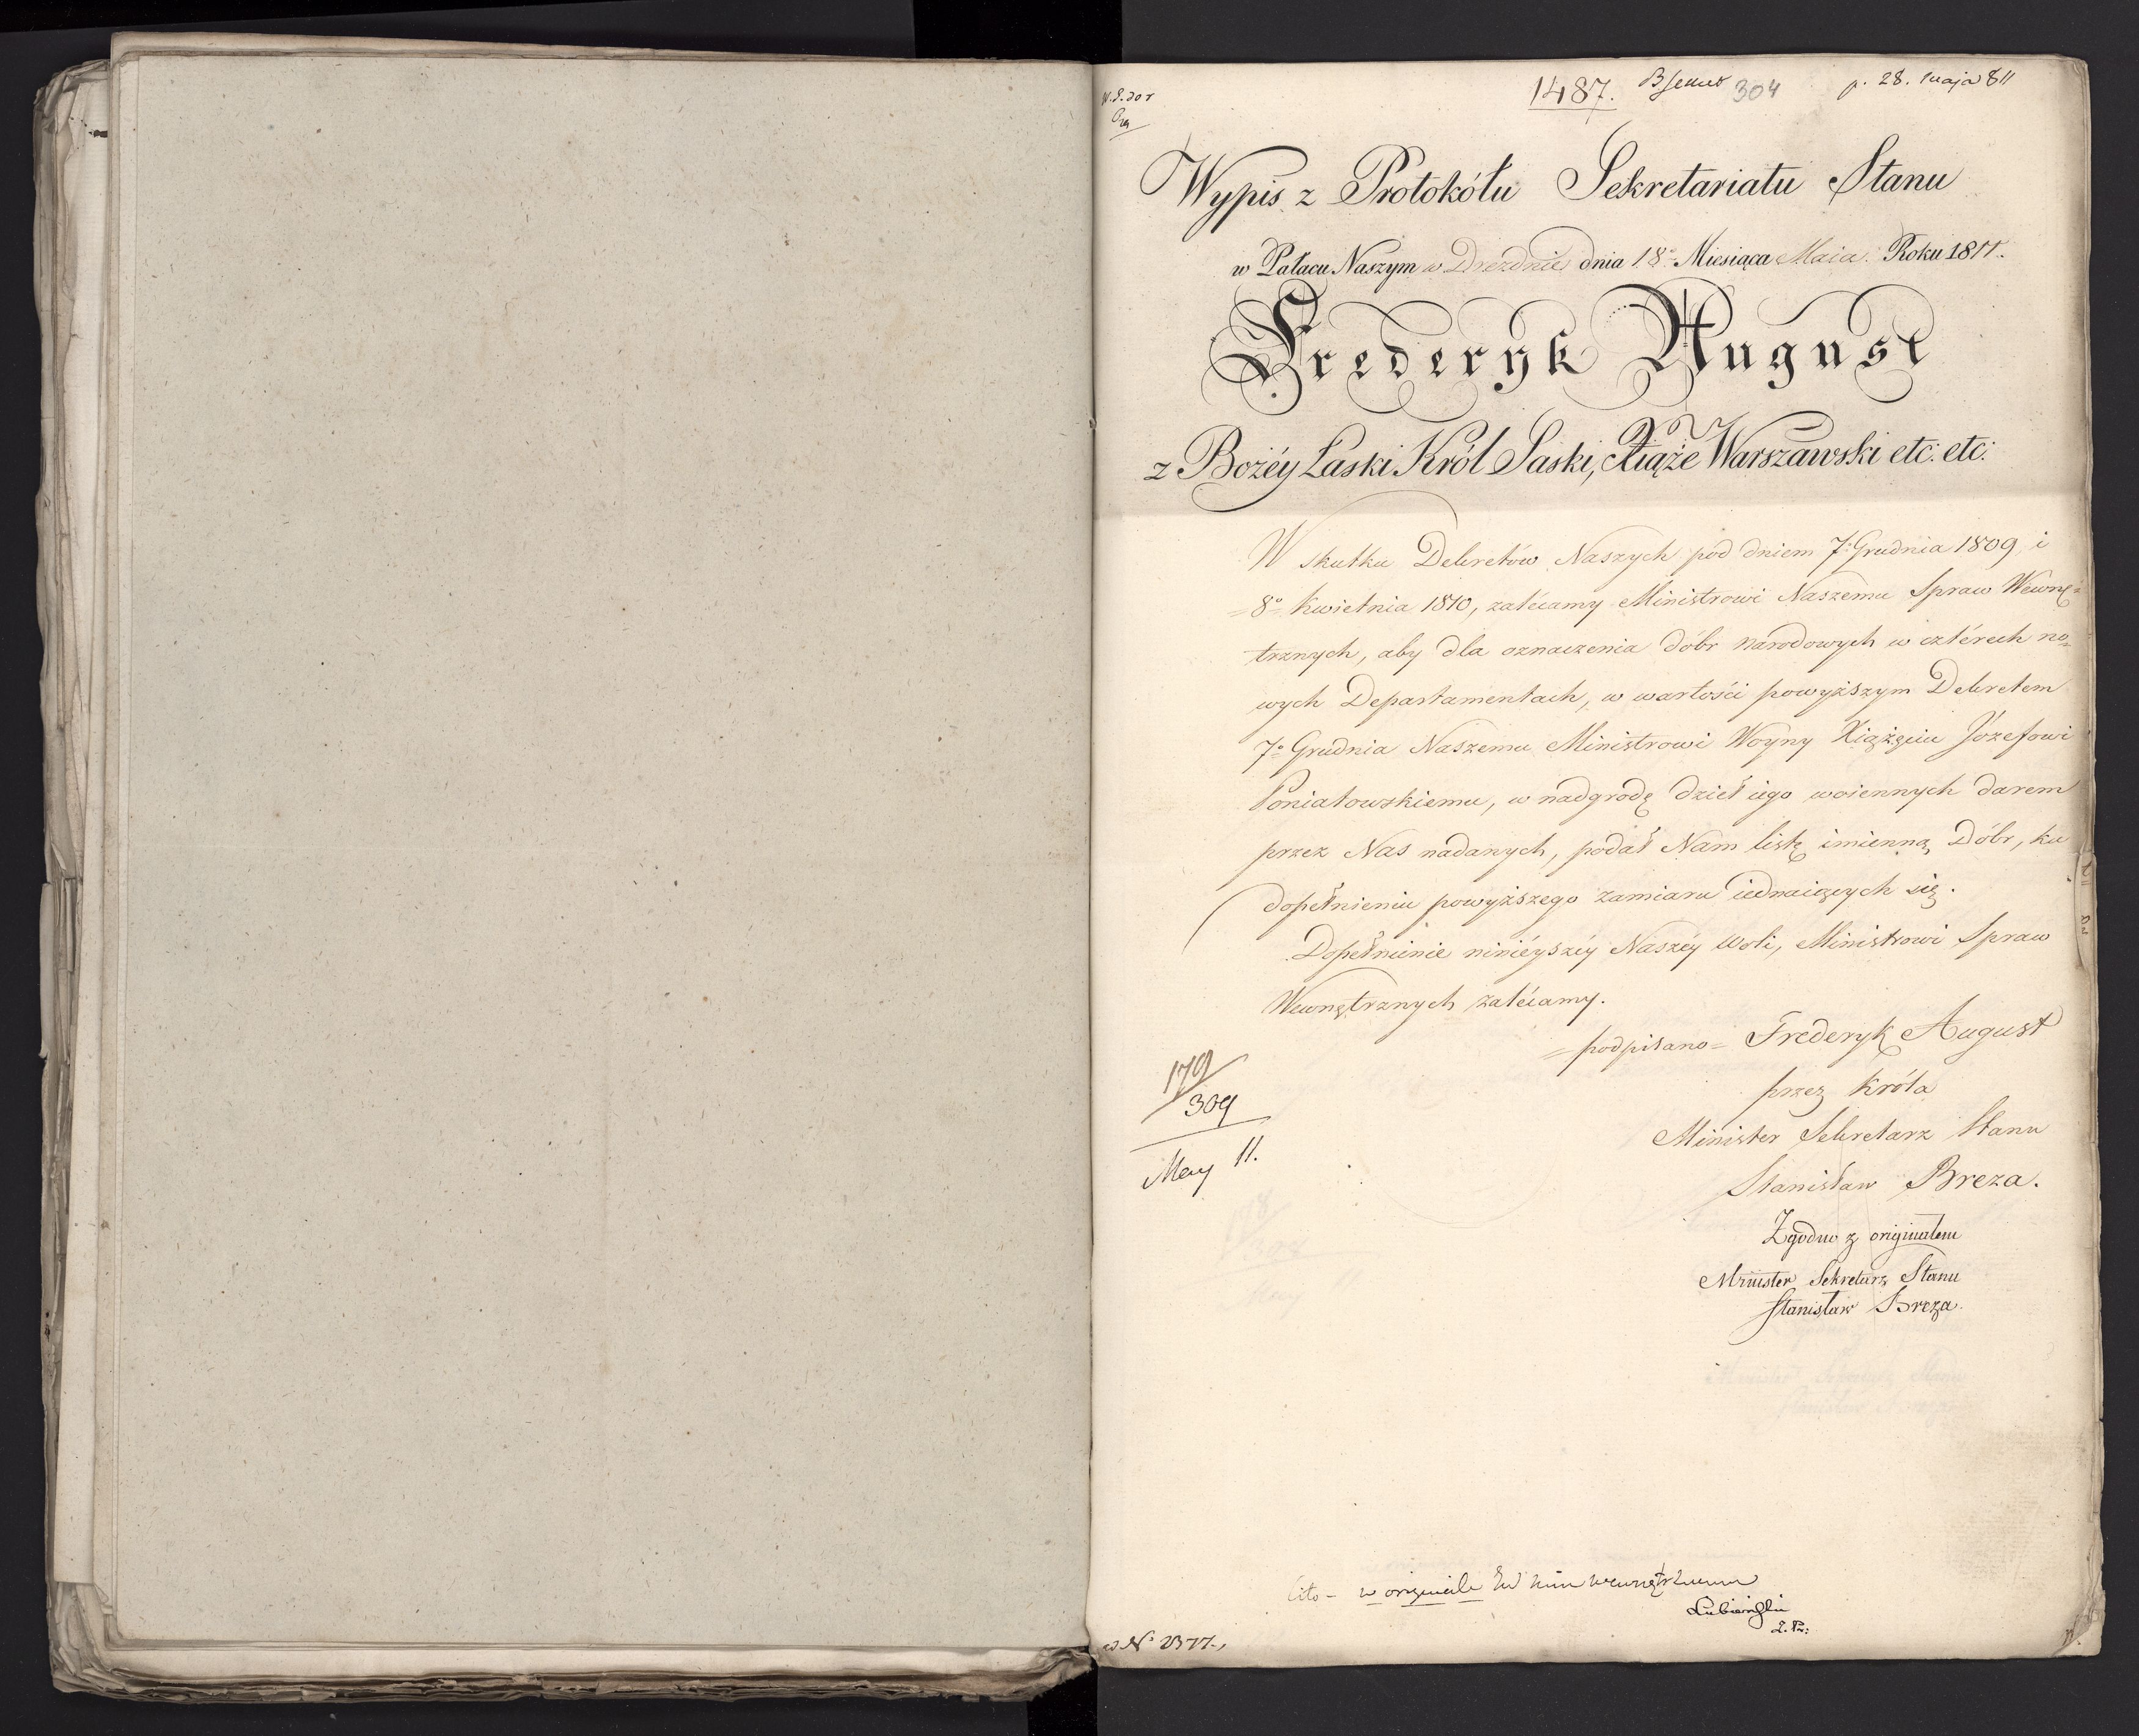 1487. 304 p. 28. maja 811
Wypis z Protokółu Sekretariatu Stanu
w Pałacu Naszym w Dreźdnie dnia 18º Miesiąca Maia. Roku 1811.
Frederyk August
z Bożéy Łaski Król Saski, Xiąże Warszawski etc: etc:
W skutku Dekretów Naszych pod dniem 7º Grudnia 1809 i
=8º Kwietnia 1810, zalécamy Ministrowi Naszemu Spraw Wewnę=
trznych, aby dla oznaczenia dóbr narodowych w cztérech no=
wych Departamentach, w wartości powyższym Dekretem
7º Grudnia Naszemu Ministrowi Woyny Xiążęciu Józefowi
Poniatowskiemu, w nadgrodę dzieł iego woiennych darem
przez Nas nadanych, podał Nam listę imienną Dóbr, ku
dopełnieniu powyższego zamiaru iednaiących się.
Dopełnienie ninieyszéy Naszéy Woli, Ministrowi Spraw
Wewnętrznych zalécamy.
=podpisano= Frederyk August
przez Króla
Minister Sekretarz Stanu
Stanisław Breza.
179
309
May 11.
Zgodno z originałem
Minister Sekretarz Stanu
Stanisław Breza.
Cito - w originale
Lubieński
N° 2377.